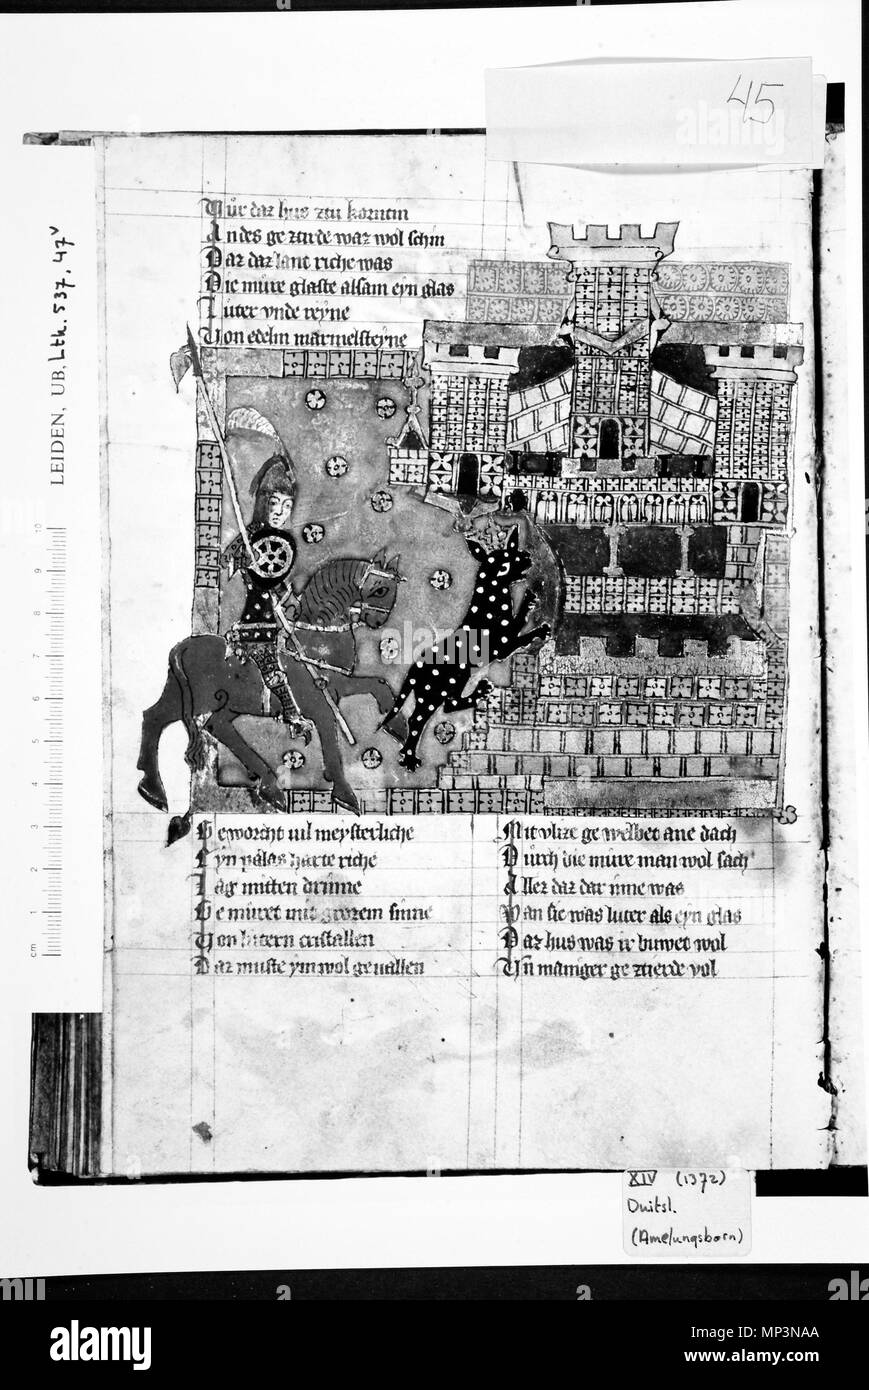 45
LEIDEN, UB, Ltk. 537, 47v
Vůr daz hus ztu korntin
An des ge ztirde waz wol schin
Daz daz lant riche was
Die mure glaste alsam eyn glas
Luter vnde reyne
Von edelm marmelsteyne
Geworcht vil meysterliche
Eyn palas harte riche
Lag mitten drinne
Gemuret mit grozem sinne
Von lutern cristallen
Daz muste ym wol geuallen
Mit vlize ge welbet ane dach
Durch die mure man wol sach
Allez daz dar inne was
Wan sie was luter als eyn glas
Daz hus was ir buwet wol
Vn maniger ge ztierde vol
cm 1 2 3 4 5 6 7 8 9 10
XIV (1372)
Duitsl.
(Amelungsborn)
alamy
Image ID: MP3NAA
www.alamy.com